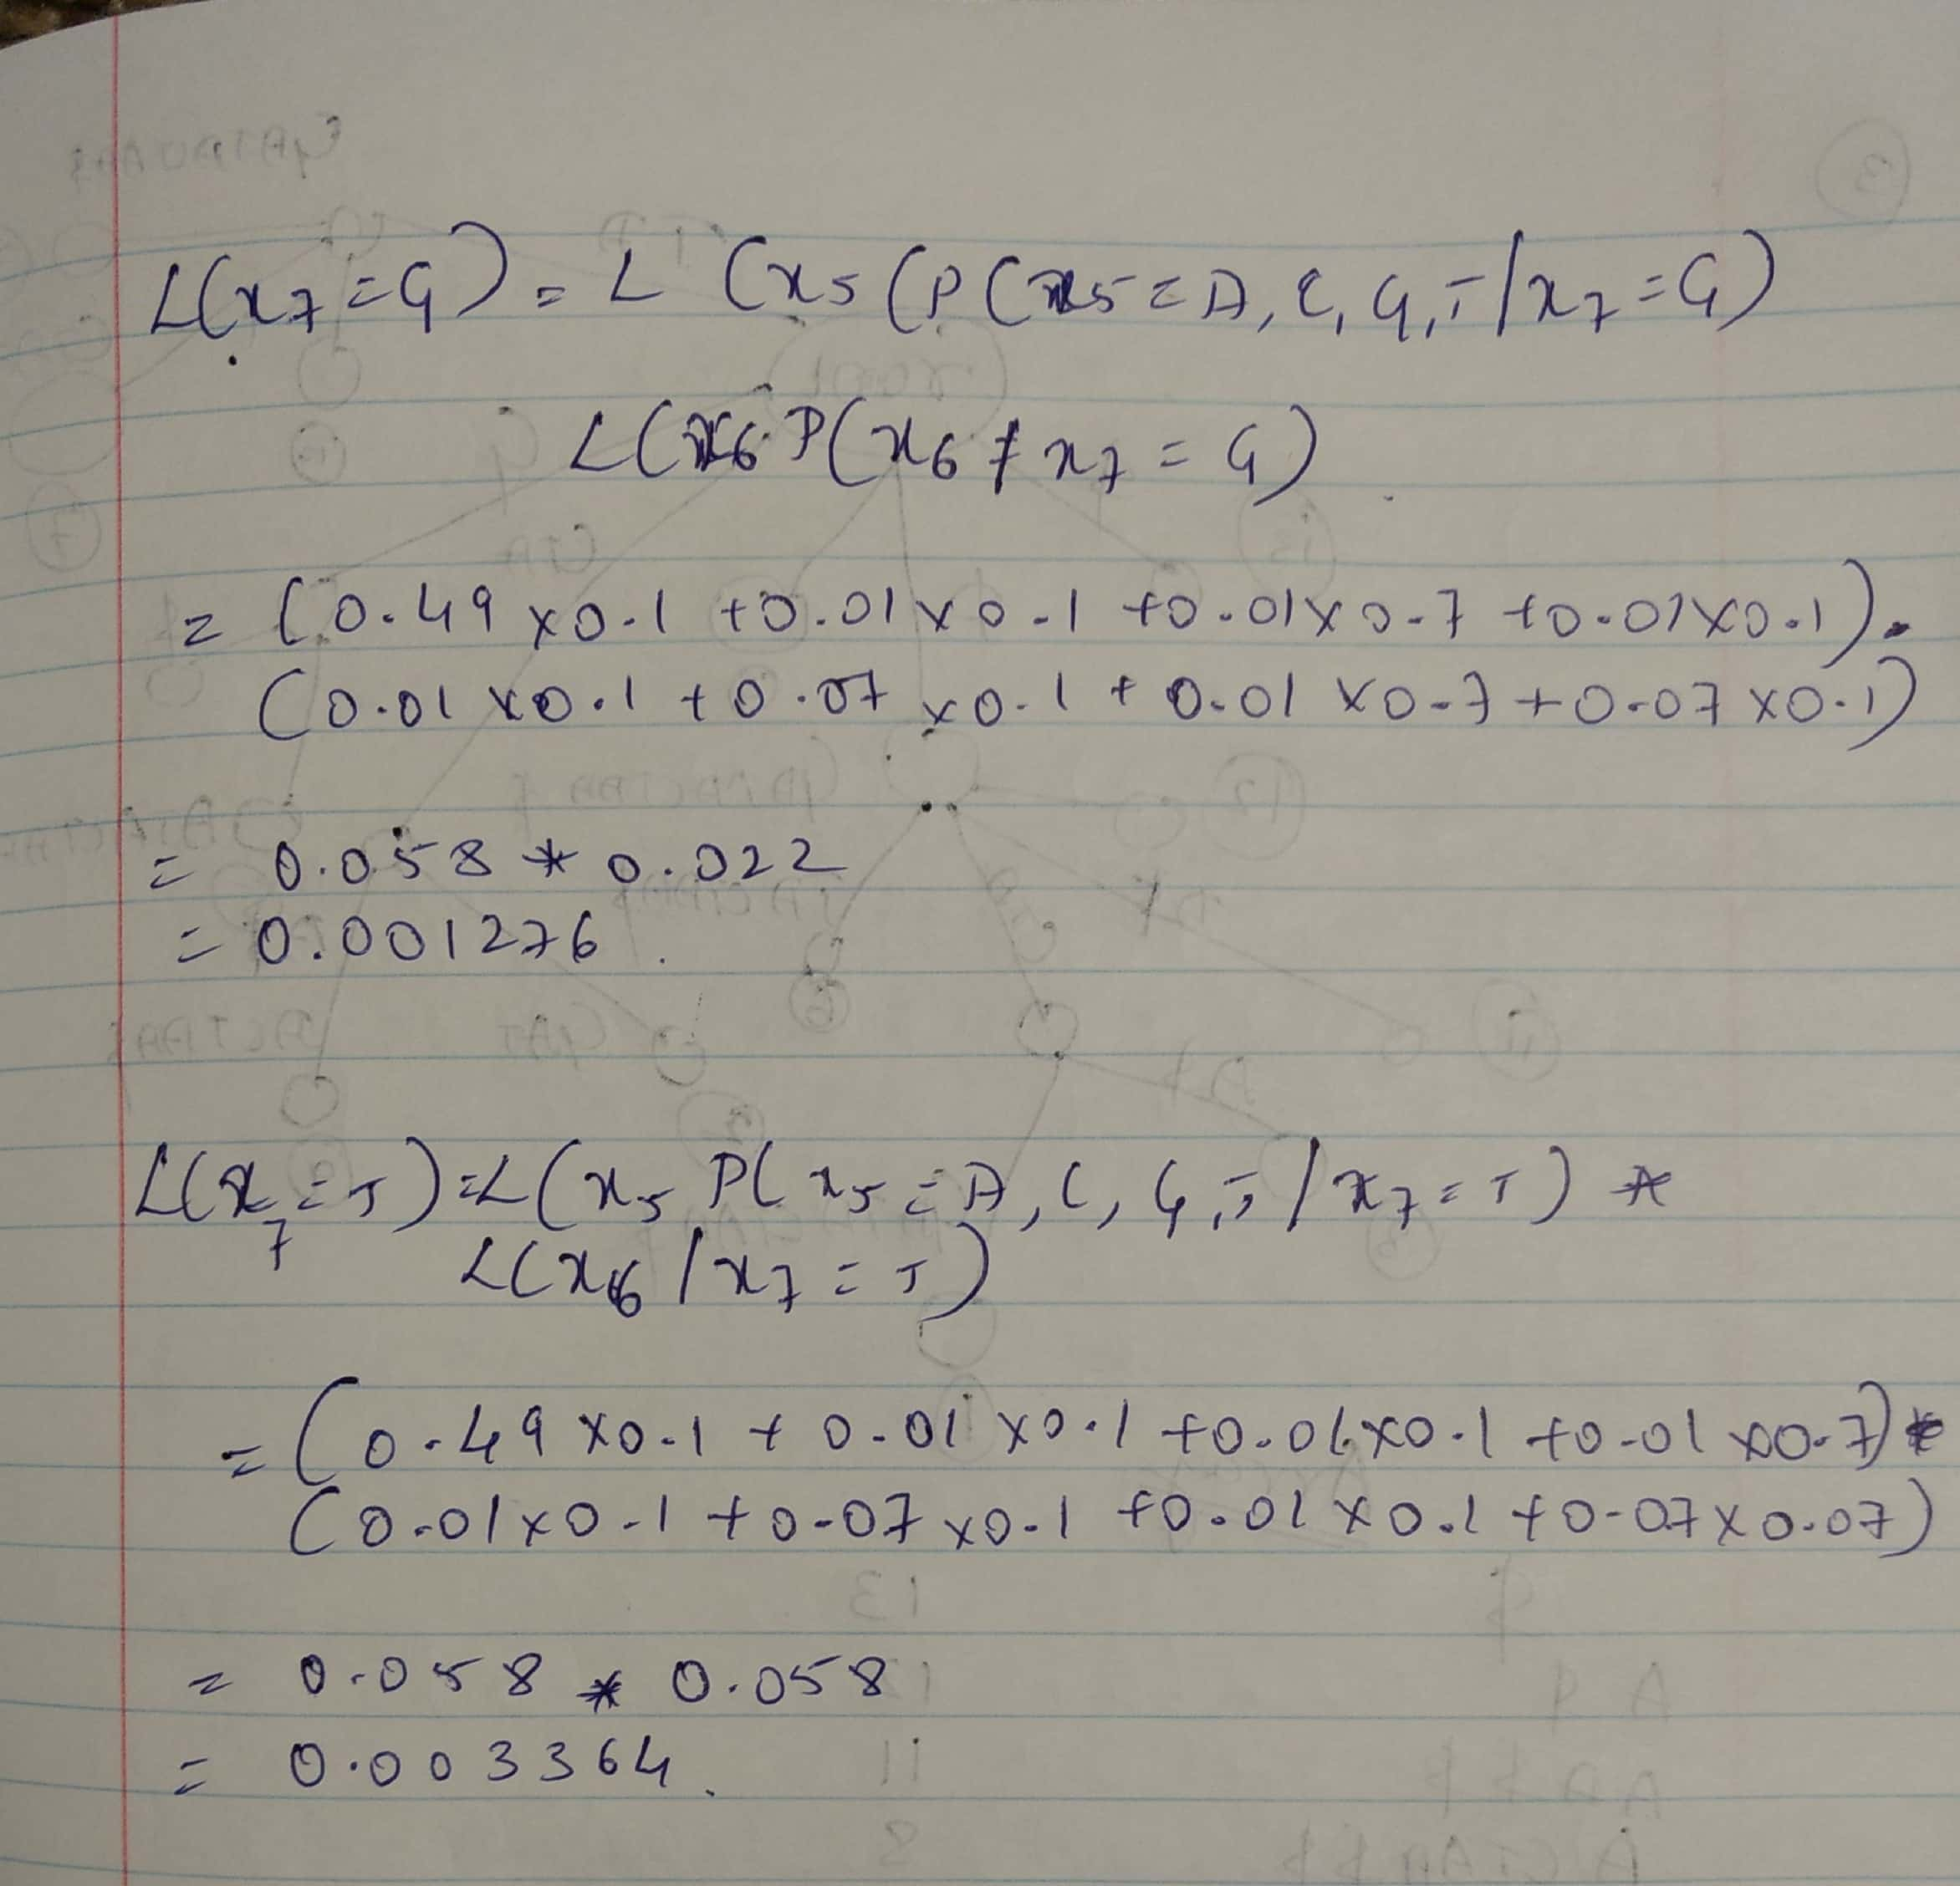 L(x7=G) = L (x5 (P(x5=A, C, G, T/x7=G)
L(x6 P(x6 / x7 = G)
= (0.49 x0.1 +0.01 x 0.1 +0.01x0.7 +0.01x0.1).
(0.01 x0.1 +0.07 x0.1 + 0.01 x0.7+0.07 x0.1)
= 0.058 * 0.022
= 0.001276.
L(x7=T)=L(x5 P(x5=A, C, G, T/x7=T) *
L(x6/x7=T)
= (0.49 x0.1 + 0.01 x0.1 +0.01x0.1 +0.01 x0.7)*
(0.01x0.1 +0.07 x0.1 +0.01 x0.1 +0.07x0.07)
= 0.058 * 0.058
= 0.003364.